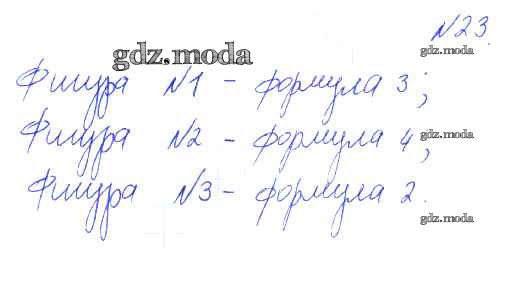 №23.
gdz.moda
gdz.moda
Фигура №1 - формула 3;
Фигура №2 - формула 4;
gdz.moda
Фигура №3 - формула 2.
gdz.moda